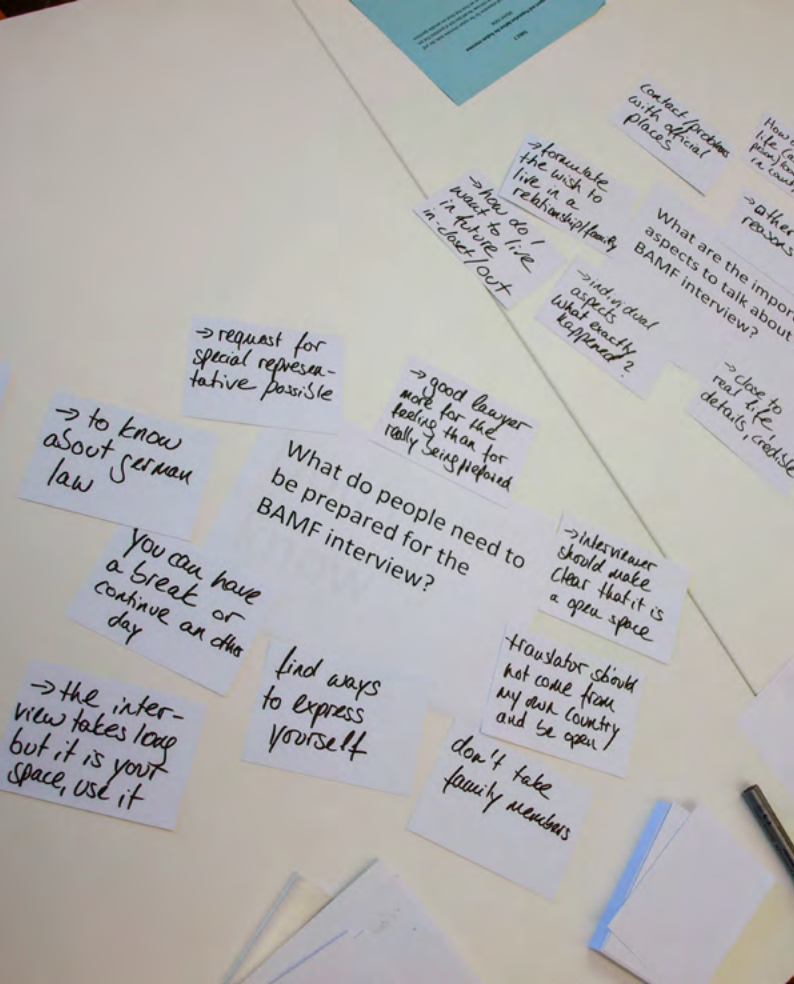 contact/problems
with official
places
→formulate
the wish to
live in a
relationship/family
→how do I
want to live
in future
in-closet/out
→other
reasons
What are the
aspects to talk about
BAMF interview?
→individual
aspects
What exactly
happened?
→close to
real life,
details, credible
→request for
special represen-
tative possible
→good lawyer
more for the
feeling than for
really being prepared
→ to know
about german
law
What do people need to
be prepared for the
BAMF interview?
→interviewer
should make
clear that it is
a open space
you can have
a break or
continue an other
day
translator should
not come from
my own country
and be open
find ways
to express
yourself
→the inter-
view takes long
but it is your
space, use it
don't take
family members